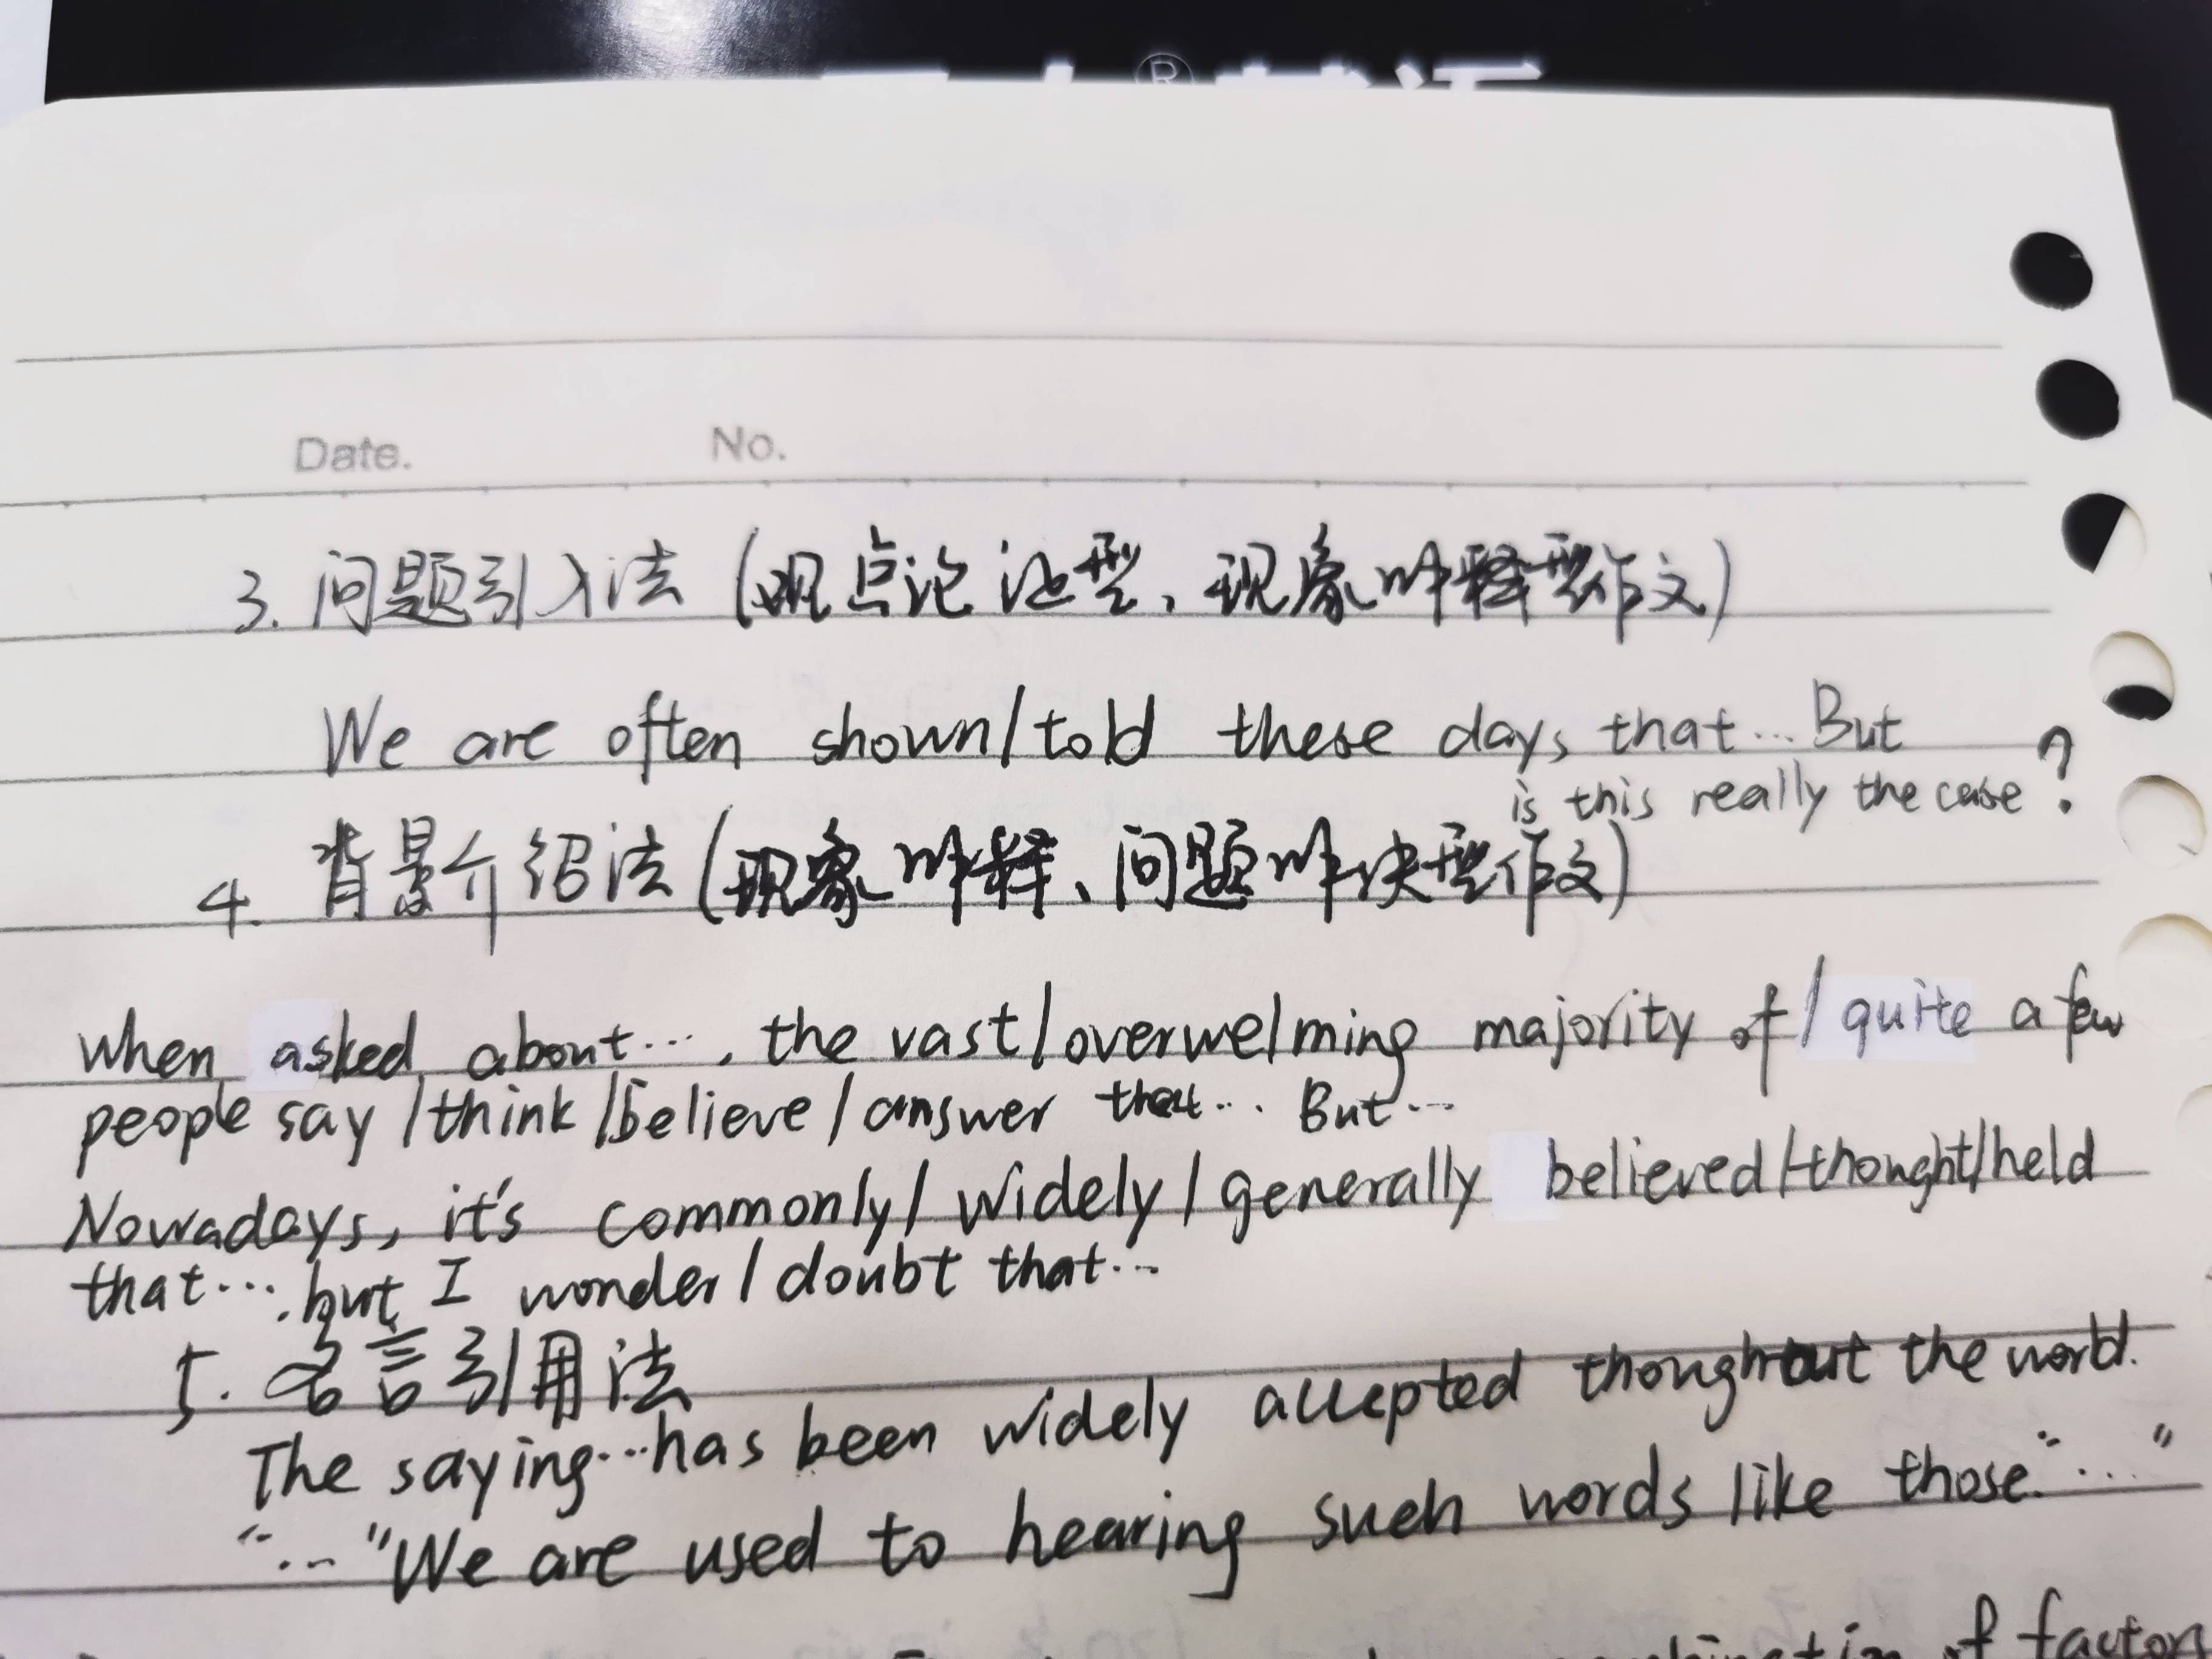 ®
Date. No.
3. 问题引入法 (观点论证型、现象解释型作文)
We are often shown/told these days that... But
is this really the case?
4. 背景介绍法 (现象解释、问题解决型作文)
when asked about..., the vast/overwelming majority of/quite a few
people say/think/believe/answer that... But...
Nowadays, it's commonly/widely/generally believed/thought/held
that..., but I wonder/doubt that...
5. 名言引用法
The saying...has been widely accepted thoughtout the world.
"..." We are used to hearing such words like those. "..."
of factors